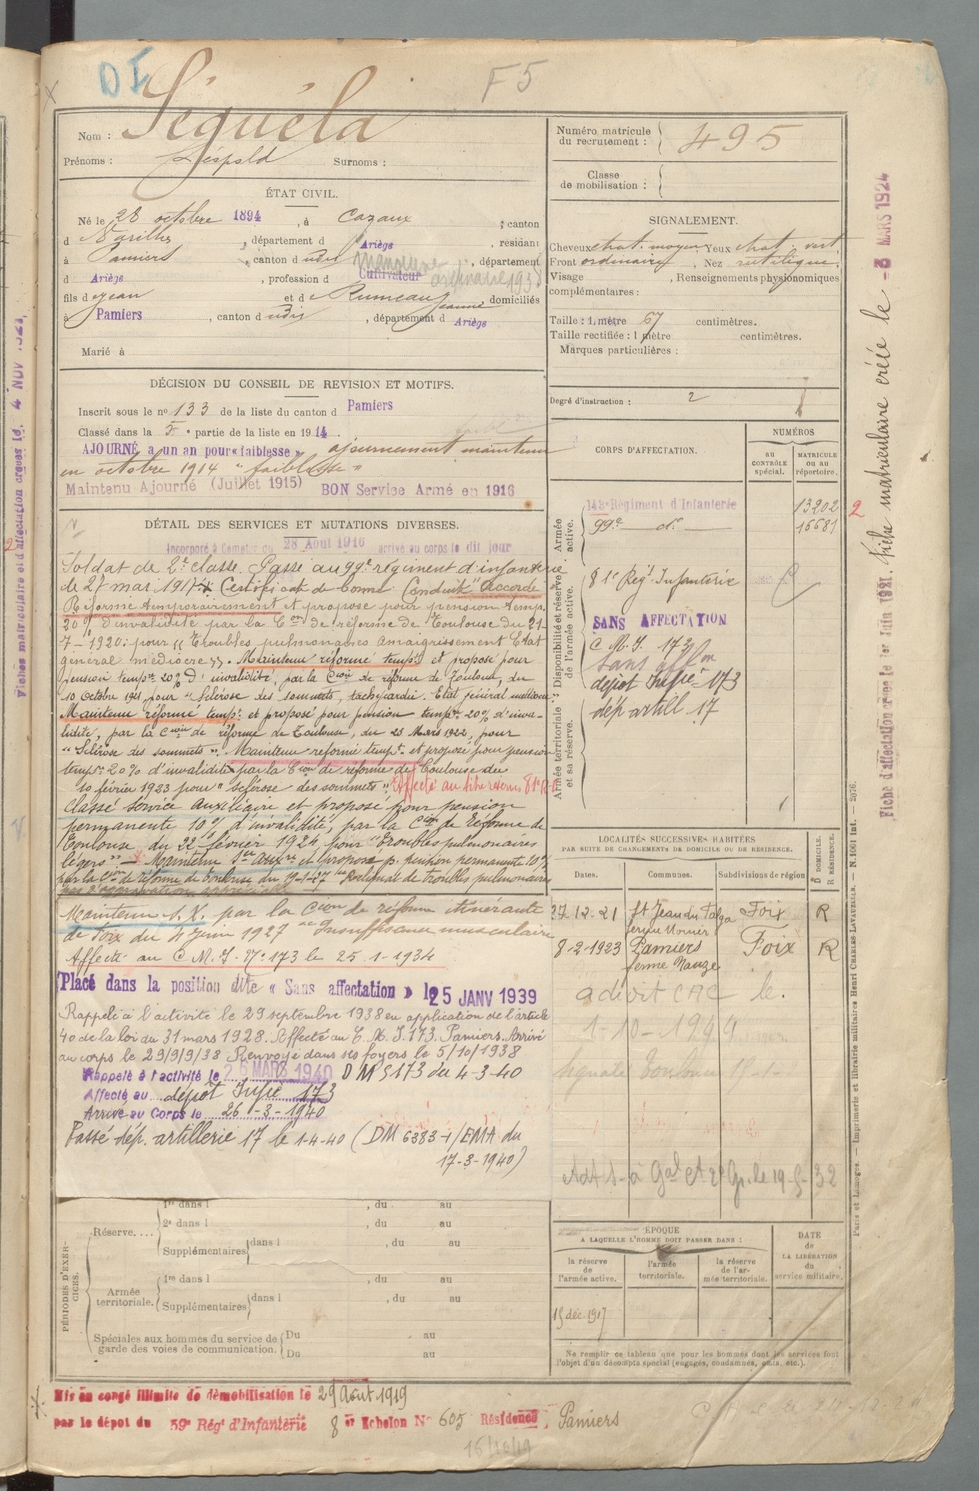 DI
F5
Nom : Séguéla
Prénoms : Léopold Surnoms :
ÉTAT CIVIL.
Né le 28 octobre 1894, à Cazaux, canton
d Varilhes, département d Ariège, résidant
à Pamiers, canton d udit, département
d Ariège, profession d Cultivateur
fils d Jean et d Rumeau Jeanne, domiciliés
à Pamiers, canton d udit, département d Ariège
Marié à
DÉCISION DU CONSEIL DE REVISION ET MOTIFS.
Inscrit sous le no 133 de la liste du canton d Pamiers
Classé dans la 5e partie de la liste en 1914
AJOURNÉ a un an pour « faiblesse » ajournement maintenu
en octobre 1914 "faiblesse"
Maintenu Ajourné (Juillet 1915) BON Service Armé en 1916
DÉTAIL DES SERVICES ET MUTATIONS DIVERSES.
Incorporé à compter du 28 Août 1916 arrivé au corps le dit jour
Soldat de 2e classe. Passé au 99e régiment d'infanterie
le 27 mai 1917. Certificat de bonne Conduite "Accordé
Réformé temporairement et proposé pour pension temp.
20% d'invalidité par la Con de réforme de Toulouse du 21-
7-1920: pour "Troubles pulmonaires amaigrissement Etat
général médiocre". Maintenu réformé tempre et proposé pour
pension tempre 20% d'invalidité, par la Con de réforme de Toulouse, du
10 Octobre 1921 pour "Sclérose des sommets, tachycardie. Etat général médiocre
Maintenu réformé tempre et proposé pour pension tempre 20% d'inva-
lidité, par la Con de réforme de Toulouse, du 23 Mars 1922, pour
"Sclérose des sommets". Maintenu réformé tempt et proposé pour pension
tempre 20% d'invalidité par la Con de réforme de Toulouse du
10 février 1923 pour "Sclérose des sommets". Affecté au
Classé service Auxiliaire et proposé pour pension
permanente 10% d'invalidité, par la Con de Réforme de
Toulouse, du 22 février 1924 pour "Troubles pulmonaires
légers" Maintenu Sce auxre et proposé p. pension permanente 10%
par la Con de réforme de Toulouse du 19-1-27 Reliquat de troubles pulmonaires
pas d'aggravation
Maintenu S.X. par la Con de réforme itinérante
de Foix du 4 Juin 1927 Insuffisance musculaire
Affecté au C M. I. No 173 le 25-1-1934
Placé dans la position dite « Sans affectation » le 25 JANV 1939
Rappelé à l'activité le 29 septembre 1938 en application de l'article
40 de la loi du 31 mars 1928. Affecté au C. M. I. 173. Pamiers. Arrivé
au corps le 29/9/38 Renvoyé dans ses foyers le 5/10/1938
Rappelé à l'activité le 26 MARS 1940 DM 5173 du 4-3-40
Affecté au dépôt Infie 173
Arrivé au Corps le 26-3-1940
Passé dép. artillerie 17 le 1-4-40 (DM 6383-1/EMA du
17-3-1940)
PÉRIODES D'EXERCICES.
Réserve....
1re dans l , du au
2e dans l , du au
Supplémentaires dans l , du au
Armée territoriale.
1re dans l , du au
Supplémentaires dans l , du au
Spéciales aux hommes du service de garde des voies de communication.
Du au
Du au
Mis en congé illimité de démobilisation le 29 Août 1919
par le dépôt du 59e Régt d'Infanterie 8e Echelon No 605 Résidence Pamiers
16/10/19
Numéro matricule du recrutement : 495
Classe de mobilisation :
SIGNALEMENT.
Cheveux chat. moyen Yeux chat. vert
Front ordinaire, Nez rectiligne,
Visage , Renseignements physionomiques
complémentaires :
Taille : 1 mètre 67 centimètres.
Taille rectifiée : 1 mètre centimètres.
Marques particulières :
Degré d'instruction : 2
CORPS D'AFFECTATION.
NUMÉROS
AU CONTRÔLE spécial.
MATRICULE OU AU répertoire.
Armée active.
143e Régiment d'Infanterie 13202
99e do 16681
2
Disponibilité et réserve de l'armée active.
81e Rég. Infanterie
SANS AFFECTATION
C M. I. 173
Sans affon
dépôt Infie 173
dép artill 17
Armée territoriale et sa réserve.
LOCALITÉS SUCCESSIVES HABITÉES
PAR SUITE DE CHANGEMENTS DE DOMICILE OU DE RÉSIDENCE.
Dates. Communes. Subdivisions de région D DOMICILE. R RÉSIDENCE.
27.12.21 St Jean du Falga Foix R
8-2-1923 Pamiers Foix R
ferme Nauze
a droit CAC le.
1-10-1944
ÉPOQUE
A LAQUELLE L'HOMME DOIT PASSER DANS :
la réserve de l'armée active.
l'armée territoriale.
la réserve de l'armée territoriale.
DATE de LA LIBÉRATION du service militaire.
15 déc. 1917
Ne remplir ce tableau que pour les hommes dont les services font
l'objet d'un décompte spécial (engagés, condamnés, omis, etc.).
Paris et Limoges. — Imprimerie et librairie militaires Henri CHARLES-LAVAUZELLE.
Fiche matriculaire créée le - 8 MARS 1924